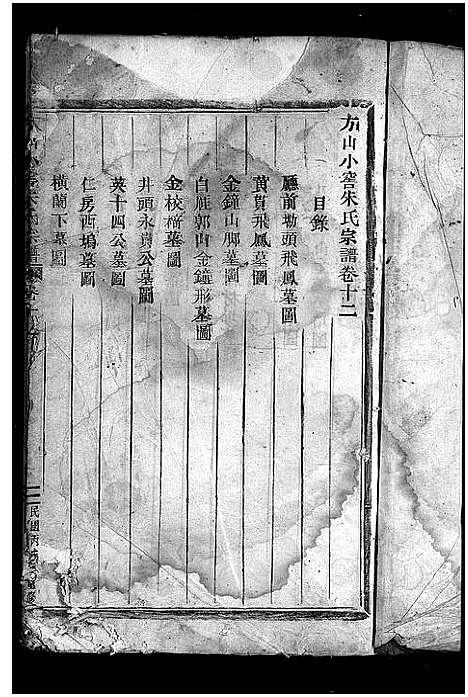 方山小窖朱氏宗譜卷十二
目錄
廳前坳頭飛鳳墓圖
黃貢飛鳳墓圖
金鐘山脚墓圖
白鹿郭山金鐘形墓圖
金校椅墓圖
井頭永貞公墓圖
英十四公墓圖
仁房西塢墓圖
橫蘭下墓圖
民國丙